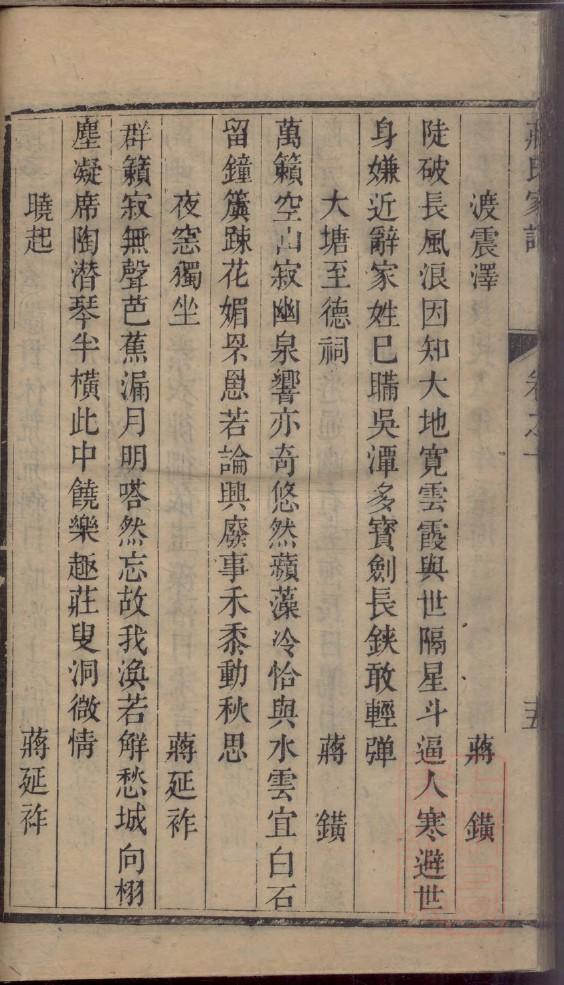 蔣氏家詩
卷之十
五
渡震澤 蔣鐄
陡破長風浪因知大地寬雲霞與世隔星斗逼人寒避世
身嫌近辭家姓巳瞞吳潭多寶劍長鋏敢輕彈
大塘至德祠 蔣鐄
萬籟空山寂幽泉響亦奇悠然蘋藻冷恰與水雲宜白石
留鐘簴踈花媚罘罳若論興廢事禾黍動秋思
夜窓獨坐 蔣延祚
群籟寂無聲芭蕉漏月明嗒然忘故我渙若觧愁城向栩
塵凝席陶潛琴半橫此中饒樂趣莊叟洞微情
曉起 蔣延祚